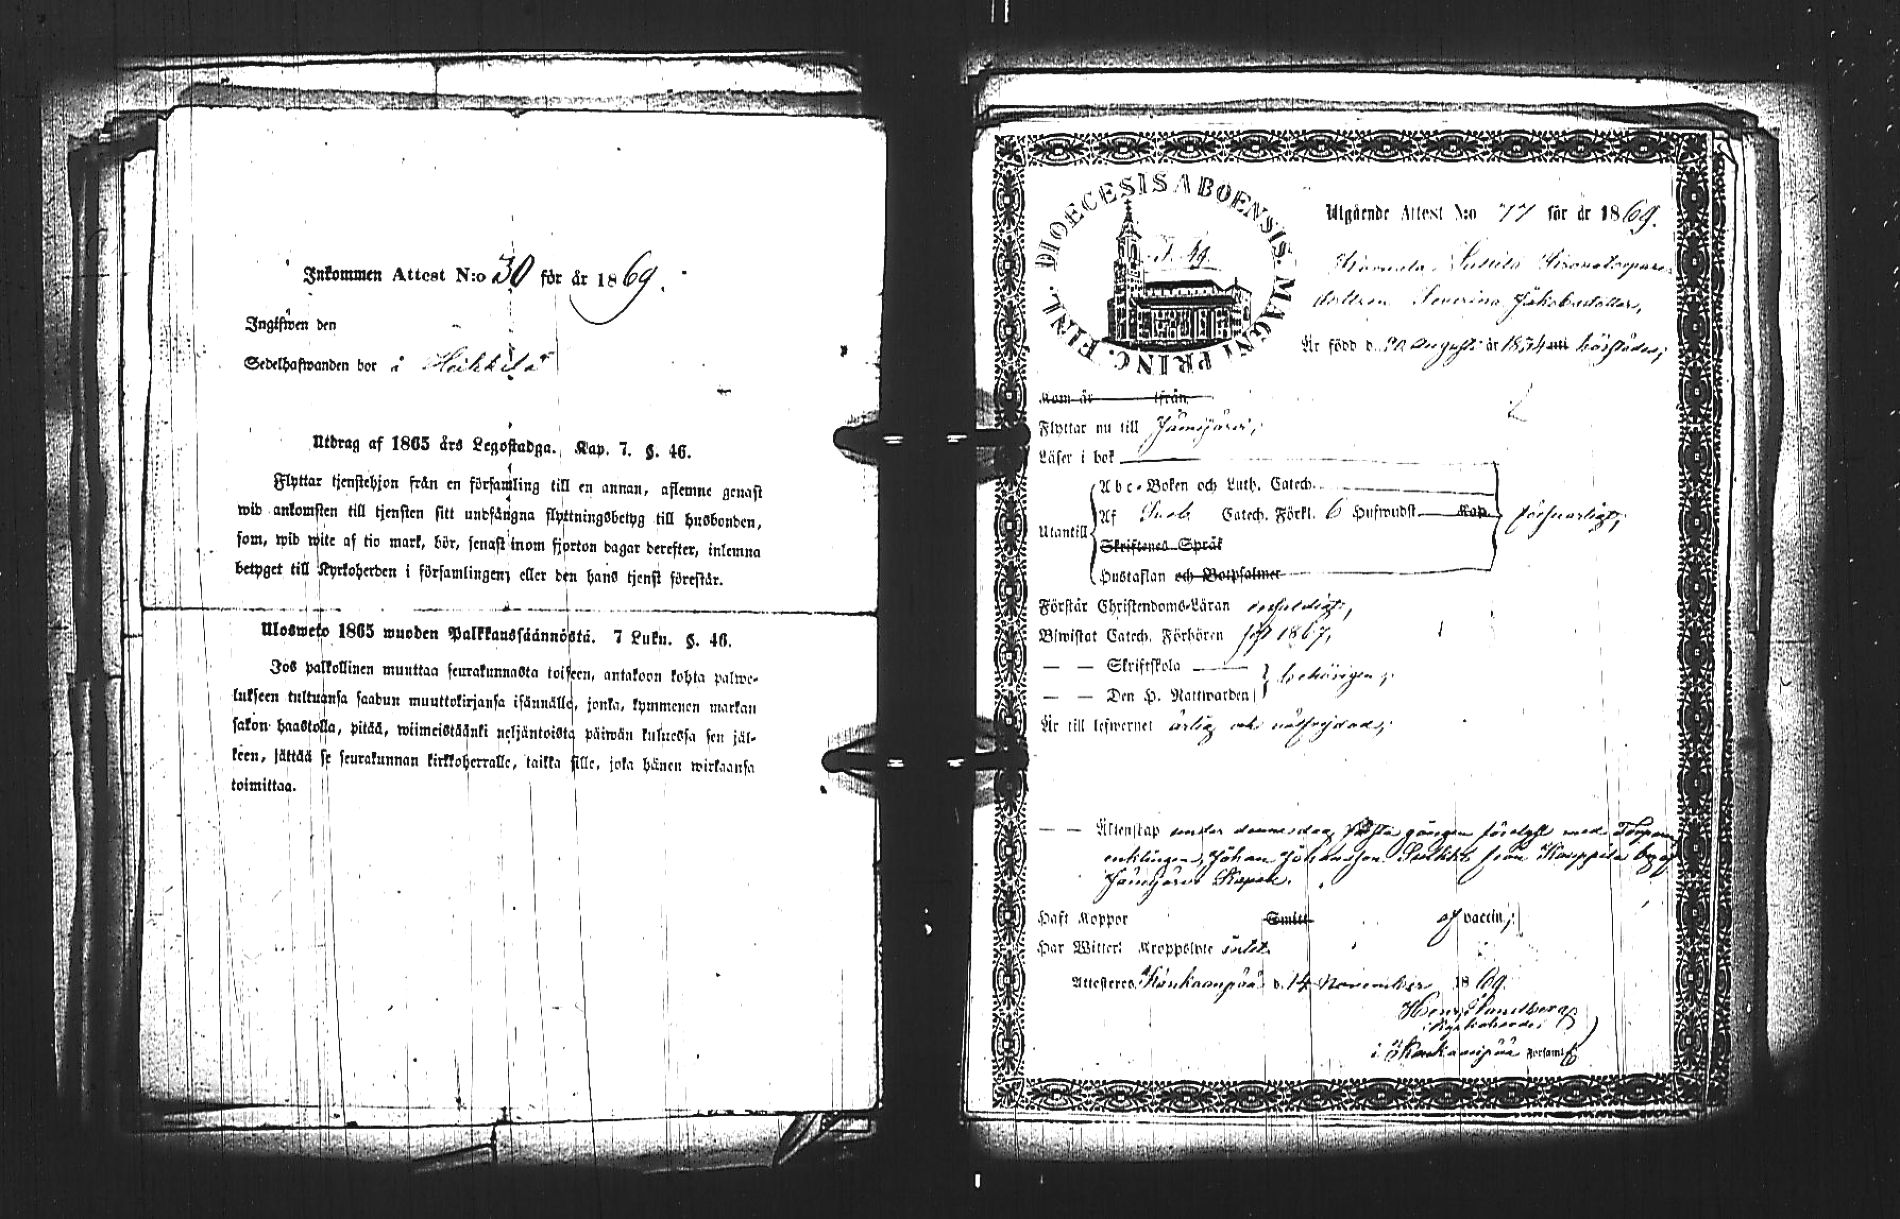 Inkommen Attest N:o 30 för år 1869.
Ingifwen den
Sedelhafwanden bor å Heikkilä
Utdrag af 1865 års Legostadga. Kap. 7. §. 46.
Flyttar tjenstehjon från en församling till en annan, aflemne genast
wid ankomsten till tjensten sitt undfångna flyttningsbetyg till husbonden,
som, wid wite af tio mark, bör, senast inom fjorton dagar derefter, inlemna
betyget till Kyrkoherden i församlingen, eller den hans tjenst förestår.
Ulosweto 1865 wuoden Palkkaussäännöstä. 7 Luku. §. 46.
Jos palkollinen muuttaa seurakunnasta toiseen, antakoon kohta palwe-
lukseen tultuansa saadun muuttokirjansa isännälle, jonka, kymmenen markan
sakon haastolla, pitää, wiimeistäänki neljäntoista päiwän kuluessa sen jäl-
keen, jättää se seurakunnan kirkkoherralle, taikka sille, joka hänen wirkaansa
toimittaa.
DIOECESIS ABOENSIS. MAGNI PRINC. FINL.
Utgående Attest N:o 77 för år 1869.
dottren Severina Jakobsdotter,
Är född d. 20 Augusti år 1834 härstädes;
Kom år ifrån
Flyttar nu till Jämijärvi,
Läser i bok
Abc-Boken och Luth. Catech.
Utantill Af Catech. Förkl. 6 Hufwudst. Kap. försvarligt,
Skriftenes Språk
Hustaflan och Botpsalmer
Förstår Christendoms-Läran
Biwistat Catech. Förhören 1867,
— — Skriftskola
behörigen;
— — Den H. Nattwarden
Är till lefwernet ärlig och välfrejdad;
— — Äktenskap under denna dag första gången förelyst med
enklingen Johan Johansson från Kauppila by af
Jämijärvi Kapell.
Haft Koppor Smitt af vaccin;
Har Witterl. Kroppslyte intet.
Attesteras Kankaanpää d. 14 November 1869.
i Kankaanpää Församl.